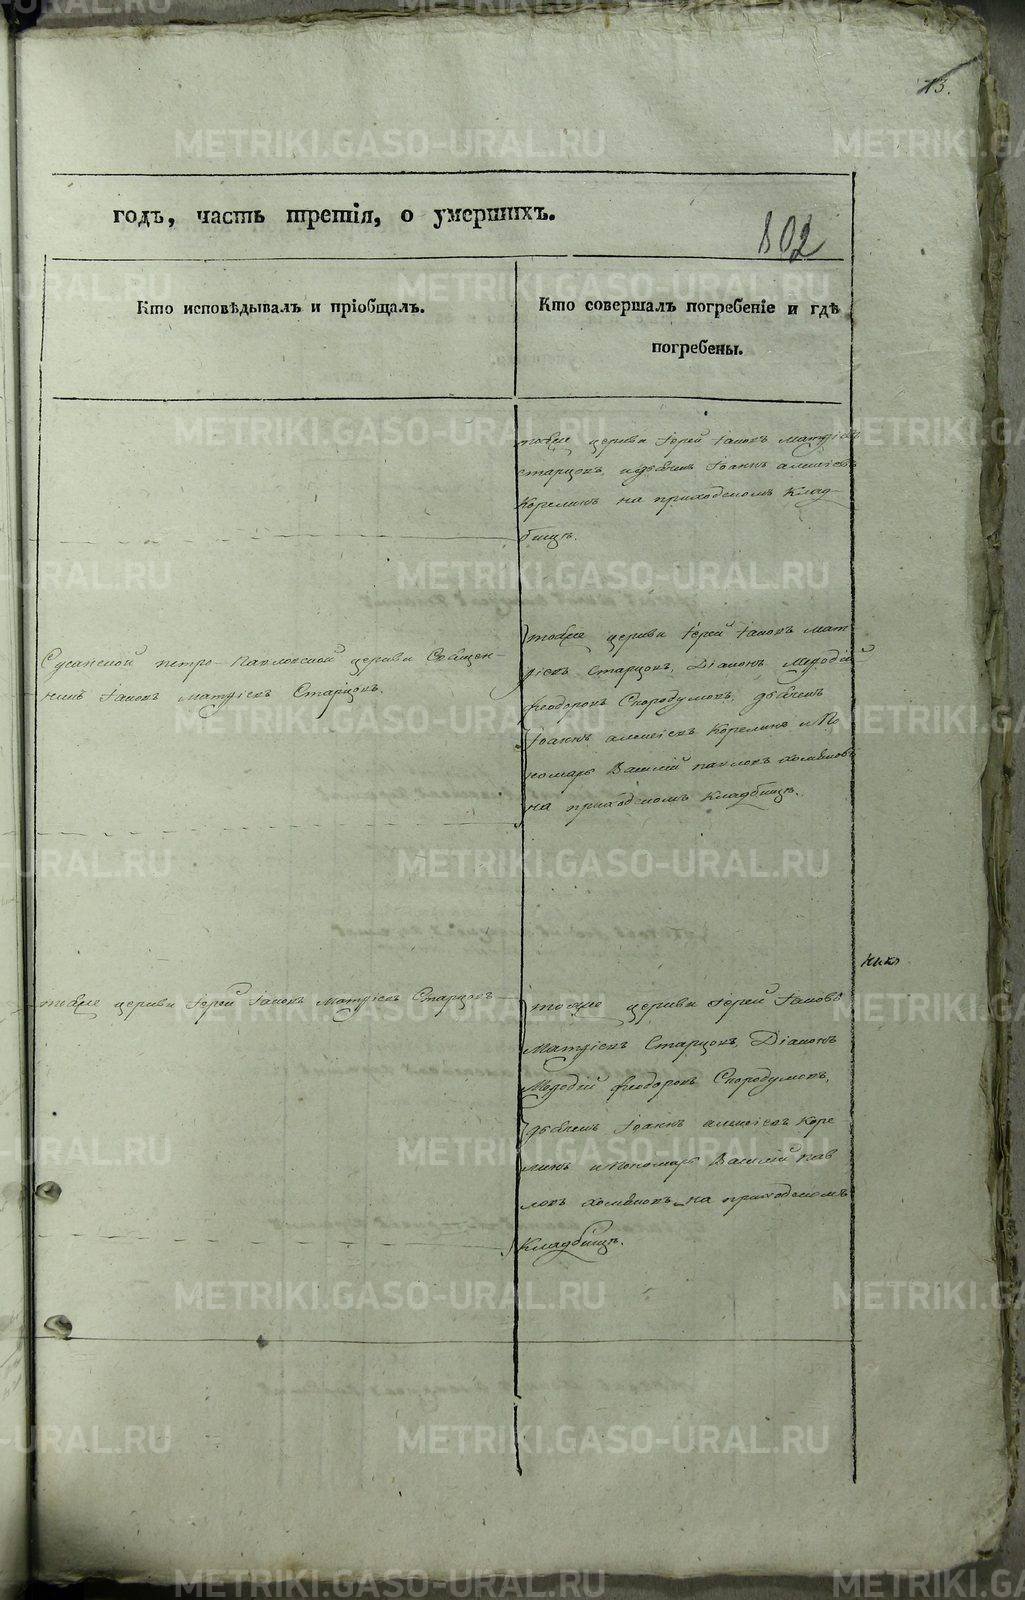 13.
годъ, часть третія, о умершихъ.
802
Кто исповѣдывалъ и пріобщалъ.
Кто совершалъ погребеніе и гдѣ
погребены.
тойже церкви Іерей Іаковъ Матѳіевъ
Старцовъ, и дьячекъ Іоаннъ Алексіевъ
Корелинъ на приходскомъ Клад-
бищѣ.
Сусанской Петро-Павловской церкви Священ-
никъ Іаковъ Матѳіевъ Старцовъ.
тойже церкви Іерей Іаковъ Мат
ѳіевъ Старцовъ, Діаконъ Меѳодій
Феодоровъ Скородумовъ, дьячекъ
Іоаннъ Алексіевъ Корелинъ и По
номарь Василій Павловъ Хомяковъ
на приходскомъ Кладбищѣ.
тойже церкви Іерей Іаковъ Матѳіевъ Старцовъ
тойже церкви Іерей Іаковъ
Матѳіевъ Старцовъ, Діаконъ
Меѳодій Феодоровъ Скородумовъ,
дьячекъ Іоаннъ Алексіевъ Коре
линъ и Пономарь Василій Пав
ловъ Хомяковъ на приходскомъ
Кладбищѣ.
METRIKI.GASO-URAL.RU